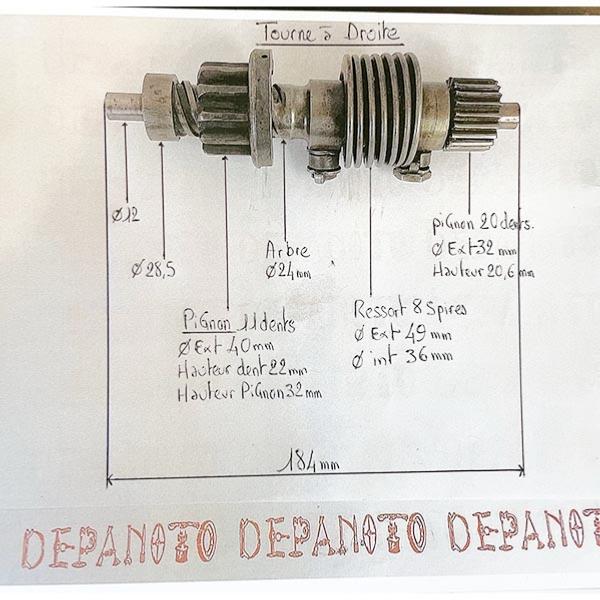 Tourne à Droite
Ø12
Ø 28,5
Arbre
Ø24mm
piGnon 20dents.
Ø Ext 32 mm
Hauteur 20,6 mm
PiGnon 11dents
Ø Ext 40mm
Hauteur dent 22mm
Hauteur PiGnon 32mm
Ressort 8 Spires
Ø Ext 49mm
Ø int 36mm
184mm
DEPANOTO DEPANOTO DEPANOT